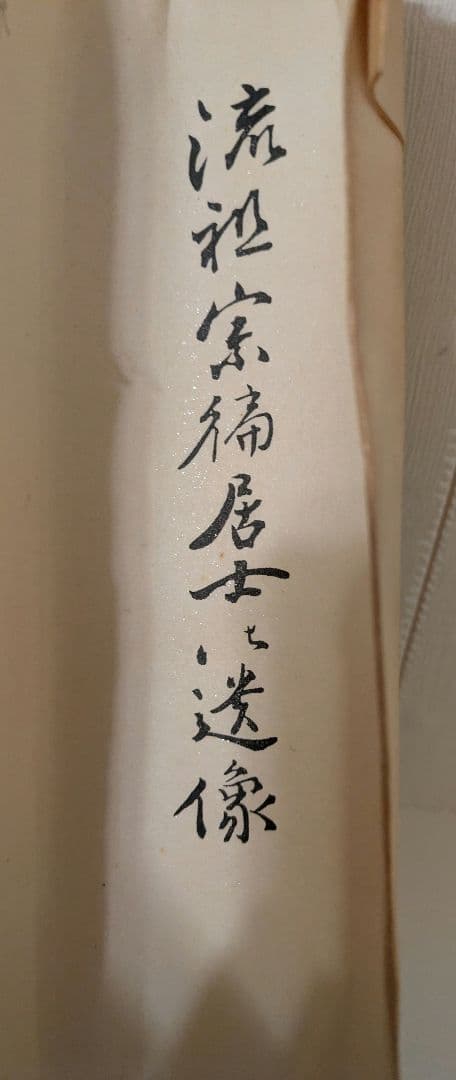 流祖宗徧居士の遺像